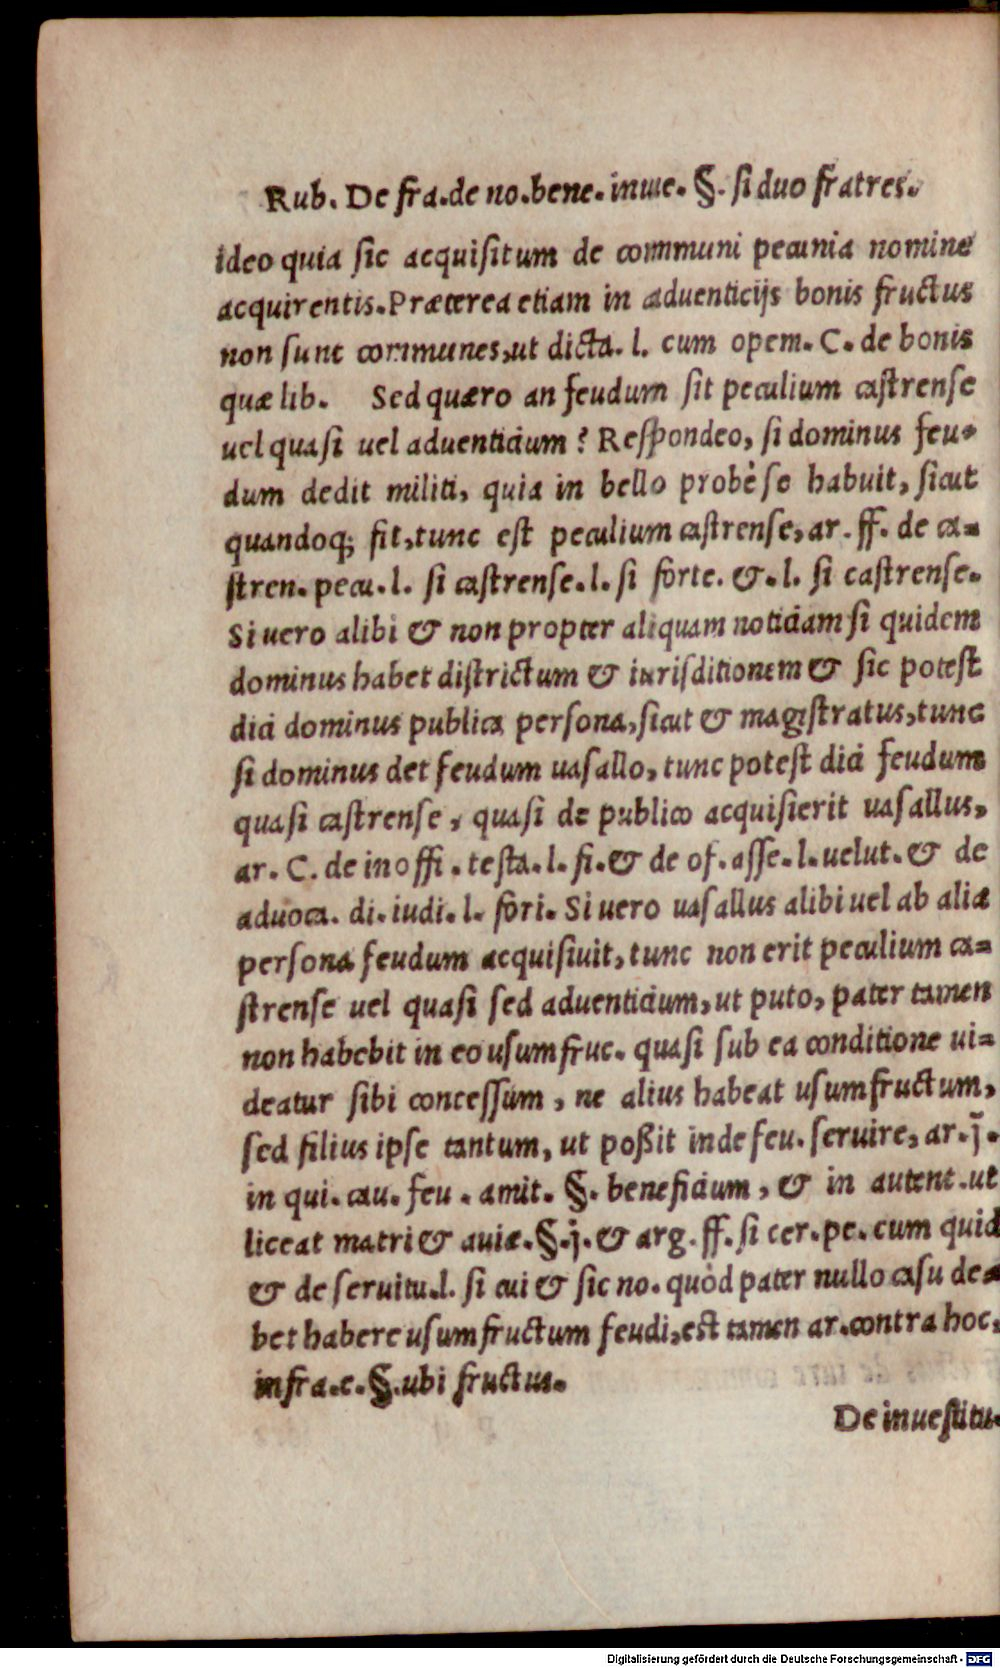 Rub. De fra.de no.bene. inue. §. si duo fratres.
ideo quia sic acquisitum de communi pecunia nomine
acquirentis. Præterea etiam in aduenticijs bonis fructus
non sunt communes, ut dicta. l. cum opem. C. de bonis
quæ lib. Sed quæro an feudum sit peculium castrense
uel quasi uel aduenticium? Respondeo, si dominus feu-
dum dedit militi, quia in bello probè se habuit, sicut
quandoq; fit, tunc est peculium castrense, ar. ff. de ca-
stren. pecu. l. si castrense. l. si forte. & . l. si castrense.
Si uero alibi & non propter aliquam noticiam si quidem
dominus habet districtum & iurisditionem & sic potest
dici dominus publica persona, sicut & magistratus, tunc
si dominus det feudum uasallo, tunc potest dici feudum
quasi castrense, quasi de publico acquisierit uasallus,
ar. C. de inoffi. testa. l. fi. & de of. asse. l. uelut. & de
aduoca. di. iudi. l. fori. Si uero uasallus alibi uel ab alia
persona feudum acquisiuit, tunc non erit peculium ca-
strense uel quasi sed aduenticium, ut puto, pater tamen
non habebit in eo usumfruc. quasi sub ea conditione ui-
deatur sibi concessum, ne alius habeat usumfructum,
sed filius ipse tantum, ut poßit inde feu. seruire, ar. j.
in qui. cau. feu. amit. §. beneficium, & in autent. ut
liceat matri & auiæ. §. j. & arg. ff. si cer. pe. cum quid
& de seruitu. l. si cui & sic no. quòd pater nullo casu de-
bet habere usumfructum feudi, est tamen ar. contra hoc,
infra. e. §. ubi fructus.
De inuestitu.
Digitalisierung gefördert durch die Deutsche Forschungsgemeinschaft - DFG